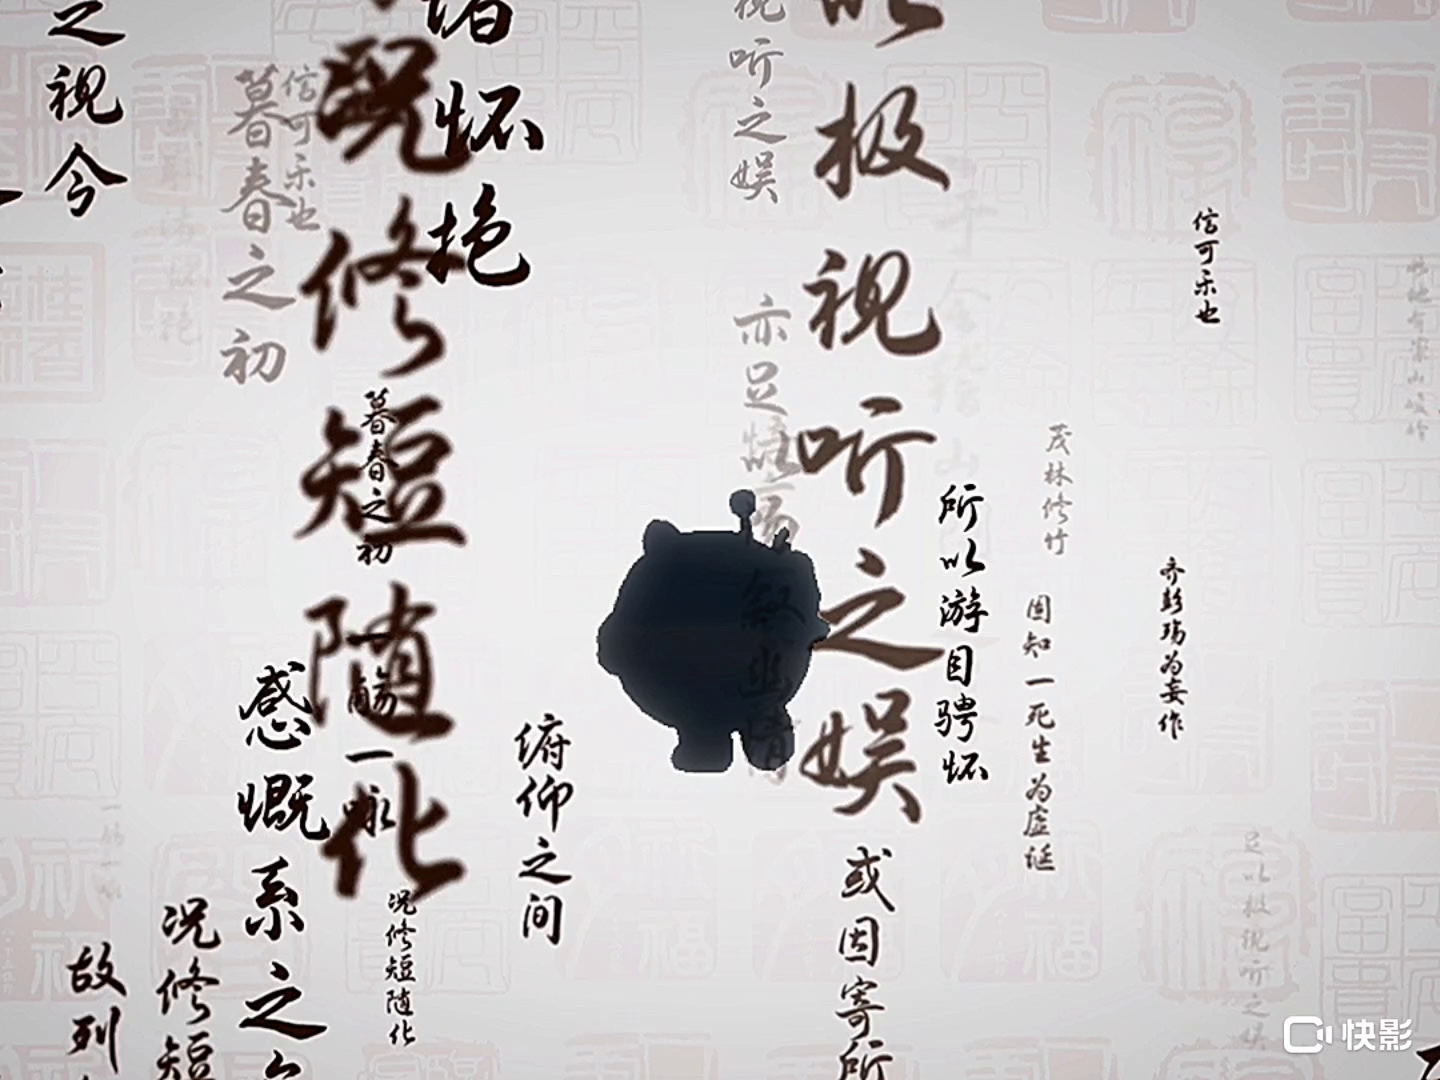 之视今
暮春之初
信可乐也
况修短随化
绪怀抱
暮春之初
觞一咏
感慨系之
俯仰之间
故列
况修短
况修短随化
视听之娱
亦足
畅叙幽情
以极视听之娱
或因寄所
所以游目骋怀
茂林修竹
固知一死生为虚诞
信可乐也
齐彭殇为妄作
足以极视听之娱
快影